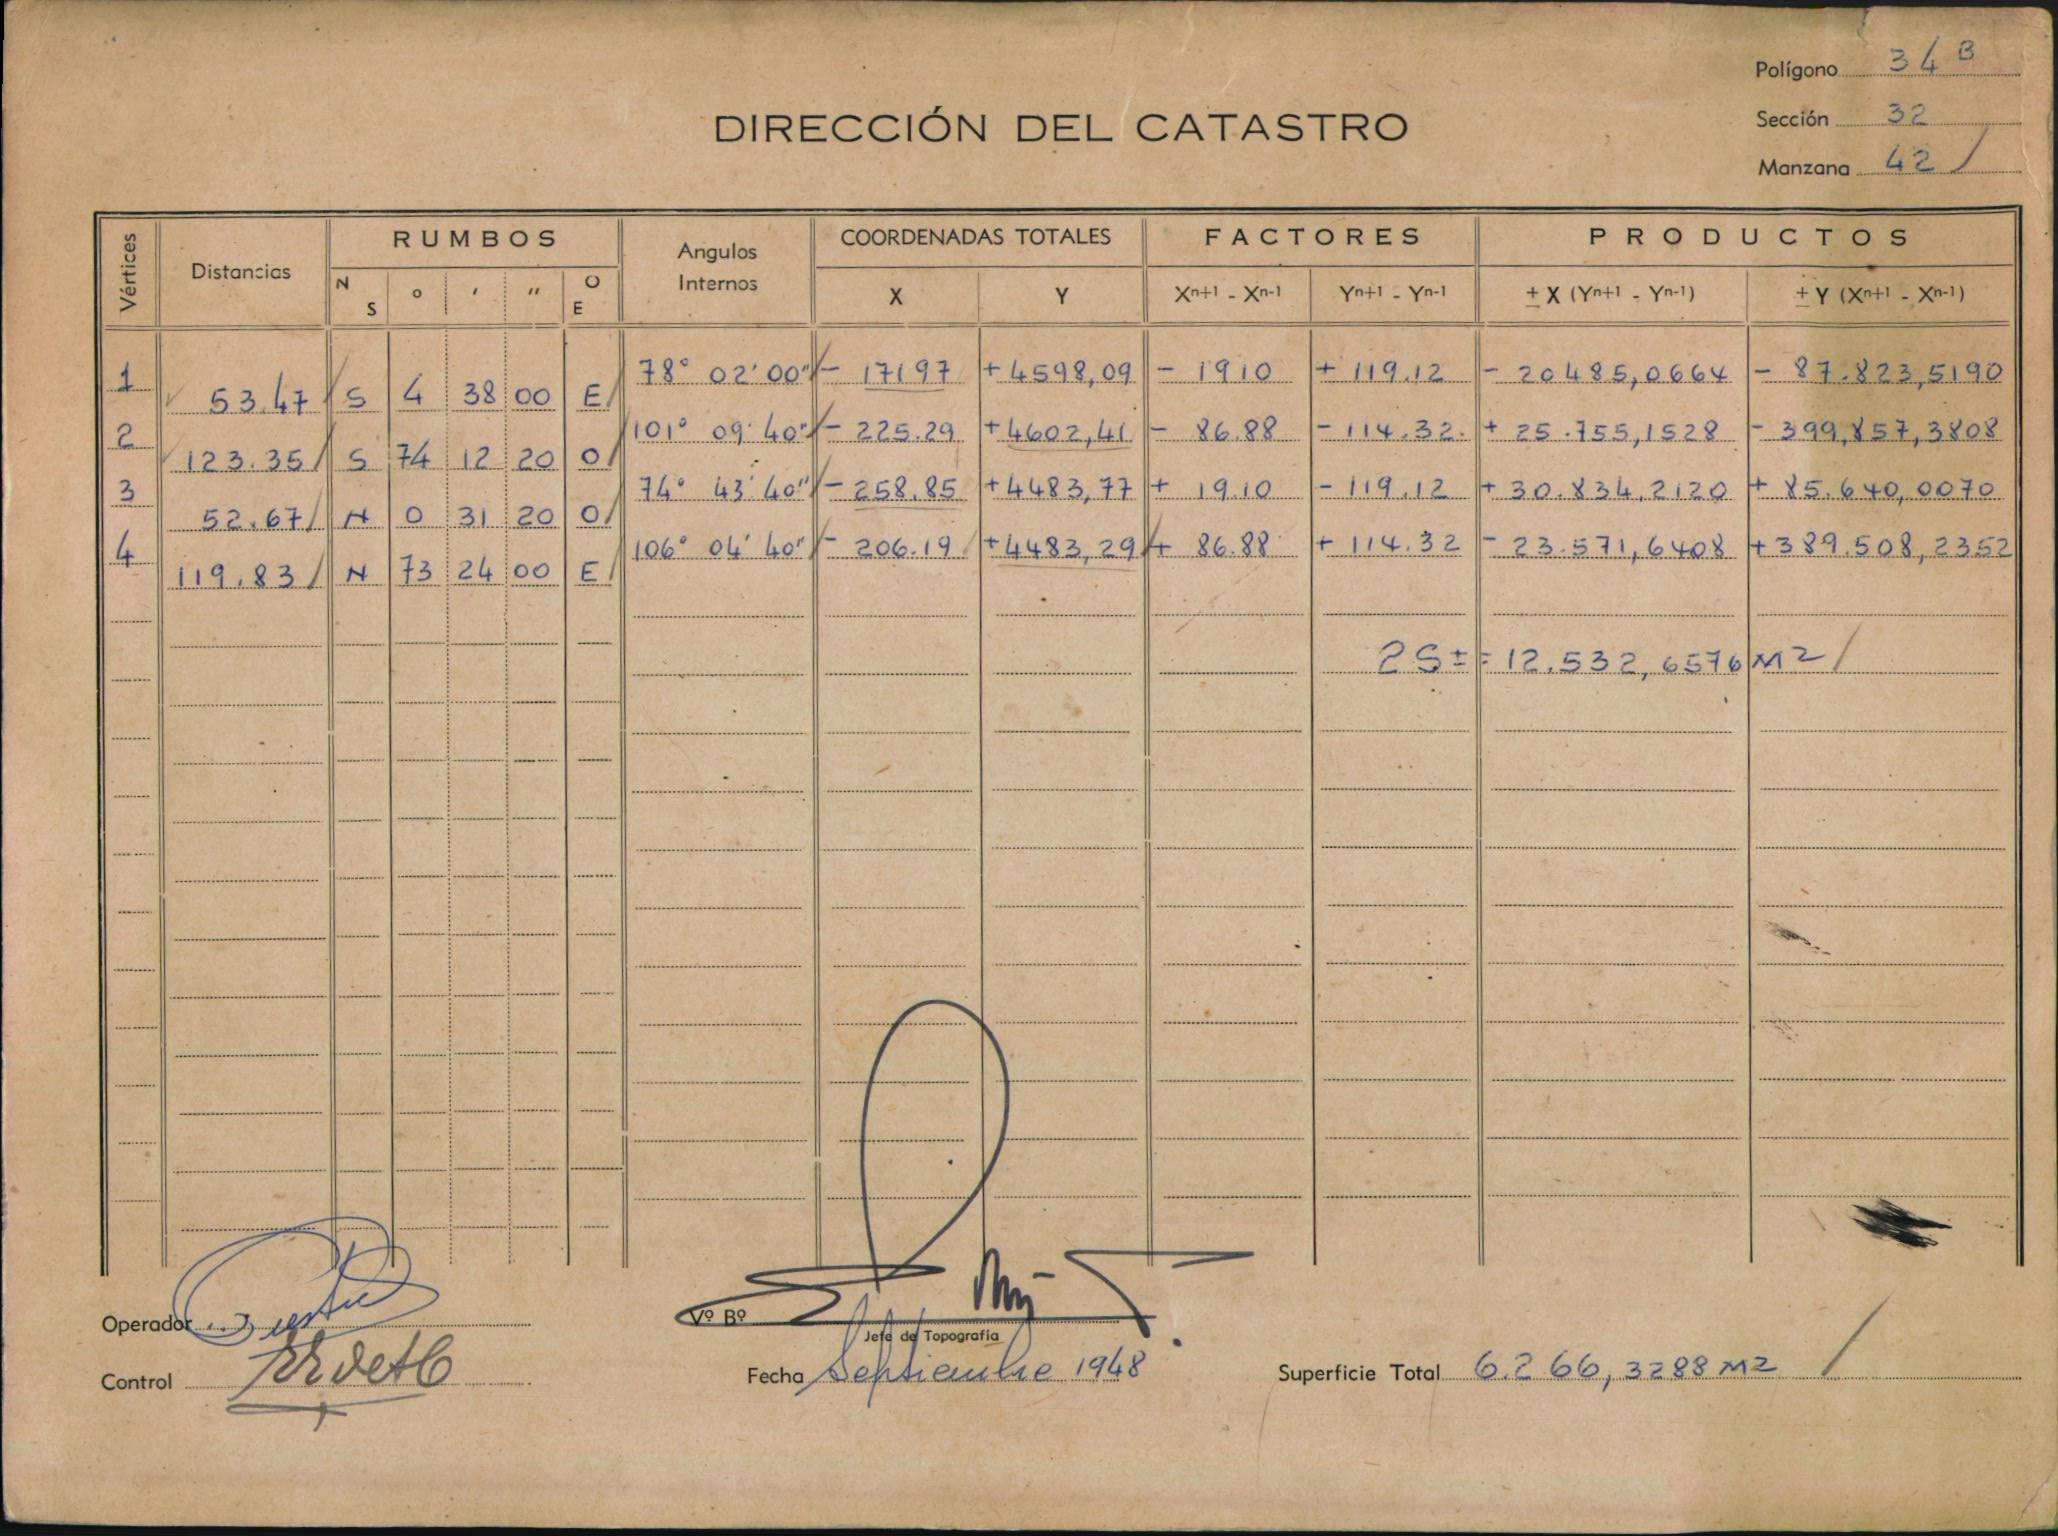 Polígono 34 B
DIRECCIÓN DEL CATASTRO
Sección 32
Manzana 42 /
Vértices Distancias RUMBOS Angulos Internos COORDENADAS TOTALES FACTORES PRODUCTOS
N S ° ' " O E X Y Xn+1 - Xn-1 Yn+1 - Yn-1 ± X (Yn+1 - Yn-1) ± Y (Xn+1 - Xn-1)
1 53.47 S 4 38 00 E 78° 02' 00" - 17197 +4598,09 - 1910 + 119.12 - 20485,0664 - 87.823,5190
2 123.35 S 74 12 20 O 101° 09' 40" - 225.29 +4602,41 - 86.88 - 114.32. + 25.755,1528 - 399,857,3808
3 52.67 N 0 31 20 O 74° 43' 40" - 258.85 +4483,77 + 19.10 - 119.12 + 30.834,2120 + 85.640,0070
4 119.83 N 73 24 00 E 106° 04' 40" - 206.19 +4483,29 + 86.88 + 114.32 - 23.571,6408 +389.508,2352
2S± = 12.532,6576 M2 /
Operador
Vº Bº
Jefe de Topografía
Control
Fecha Septiembre 1948
Superficie Total 6.266,3288 M2 /